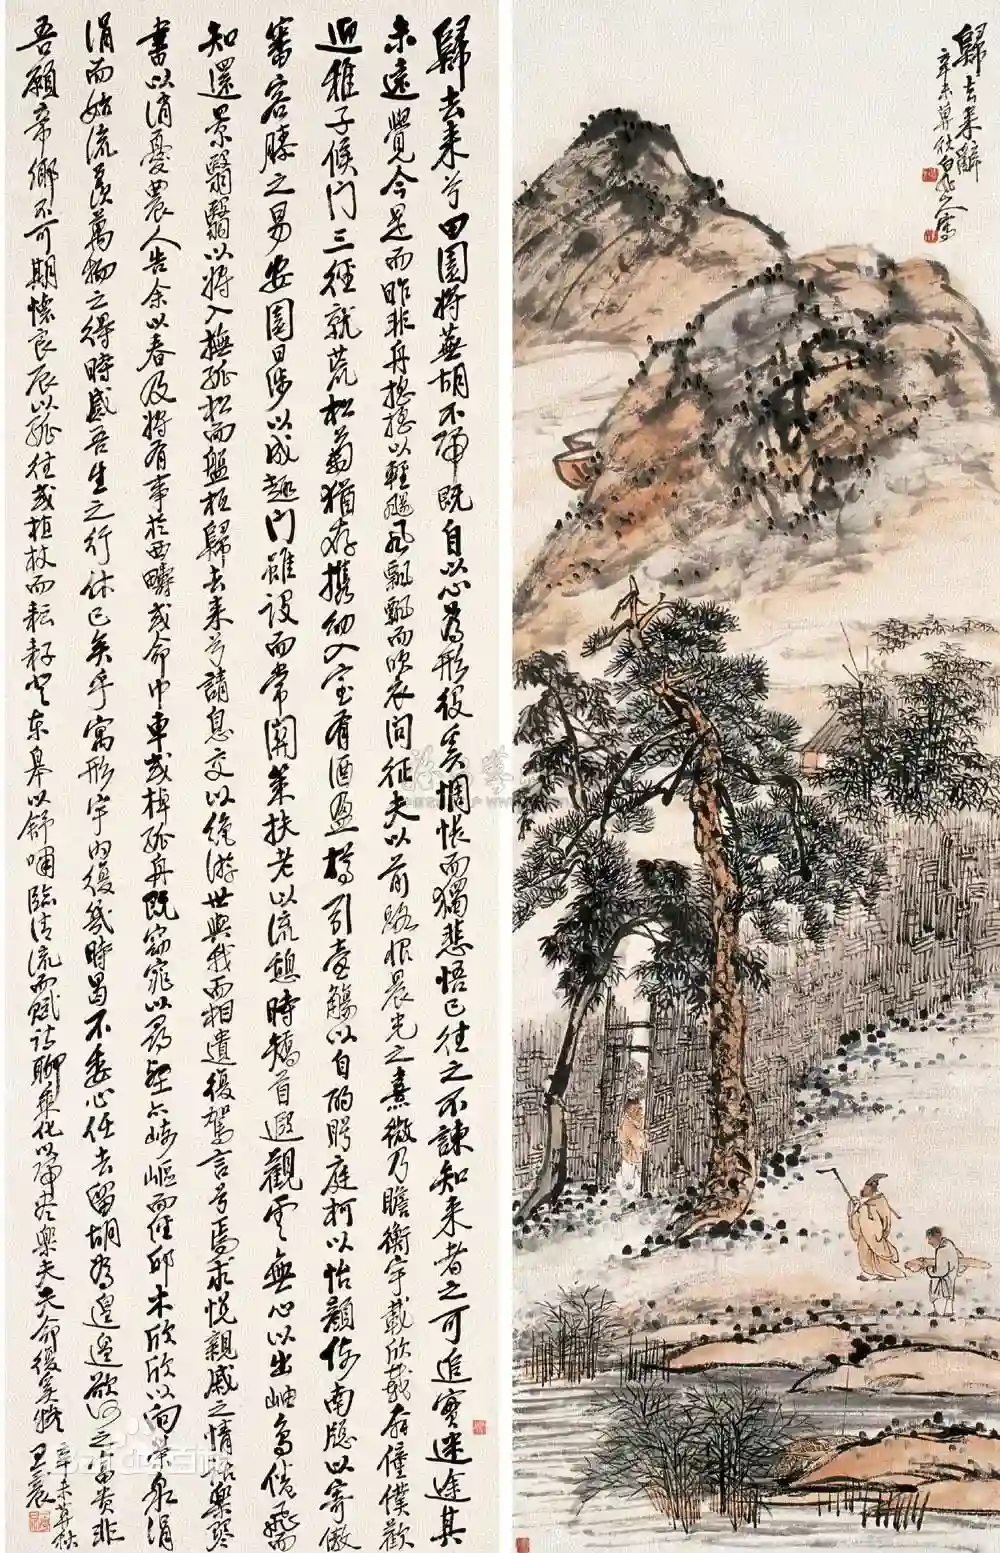 歸去来兮田園將蕪胡不歸既自以心為形役奚惆悵而獨悲悟已往之不諫知来者之可追實迷途其
未遠覺今是而昨非舟搖搖以輕颺風飄飄而吹衣問征夫以前路恨晨光之熹微乃瞻衡宇載欣載奔僮僕歡
迎稚子候門三徑就荒松菊猶存携幼入室有酒盈樽引壺觴以自酌眄庭柯以怡顏倚南牕以寄傲
審容膝之易安園日涉以成趣門雖設而常關策扶老以流憩時矯首遐觀雲無心以出岫鳥倦飛而
知還景翳翳以將入撫孤松而盤桓歸去来兮請息交以絕游世與我而相遺復駕言兮焉求悅親戚之情話樂琴
書以消憂農人告余以春及將有事於西疇或命巾車或棹孤舟既窈窕以尋壑亦崎嶇而經邱木欣欣以向榮泉涓
涓而始流羨萬物之得時感吾生之行休已矣乎寓形宇內復幾時曷不委心任去留胡為遑遑欲何之富貴非
吾願帝鄉不可期懷良辰以孤往或植杖而耘耔登東皋以舒嘯臨清流而賦詩聊乘化以歸盡樂夫天命復奚疑
辛未莫秋
王震
歸去来辭
辛未莫秋白龍山人寫